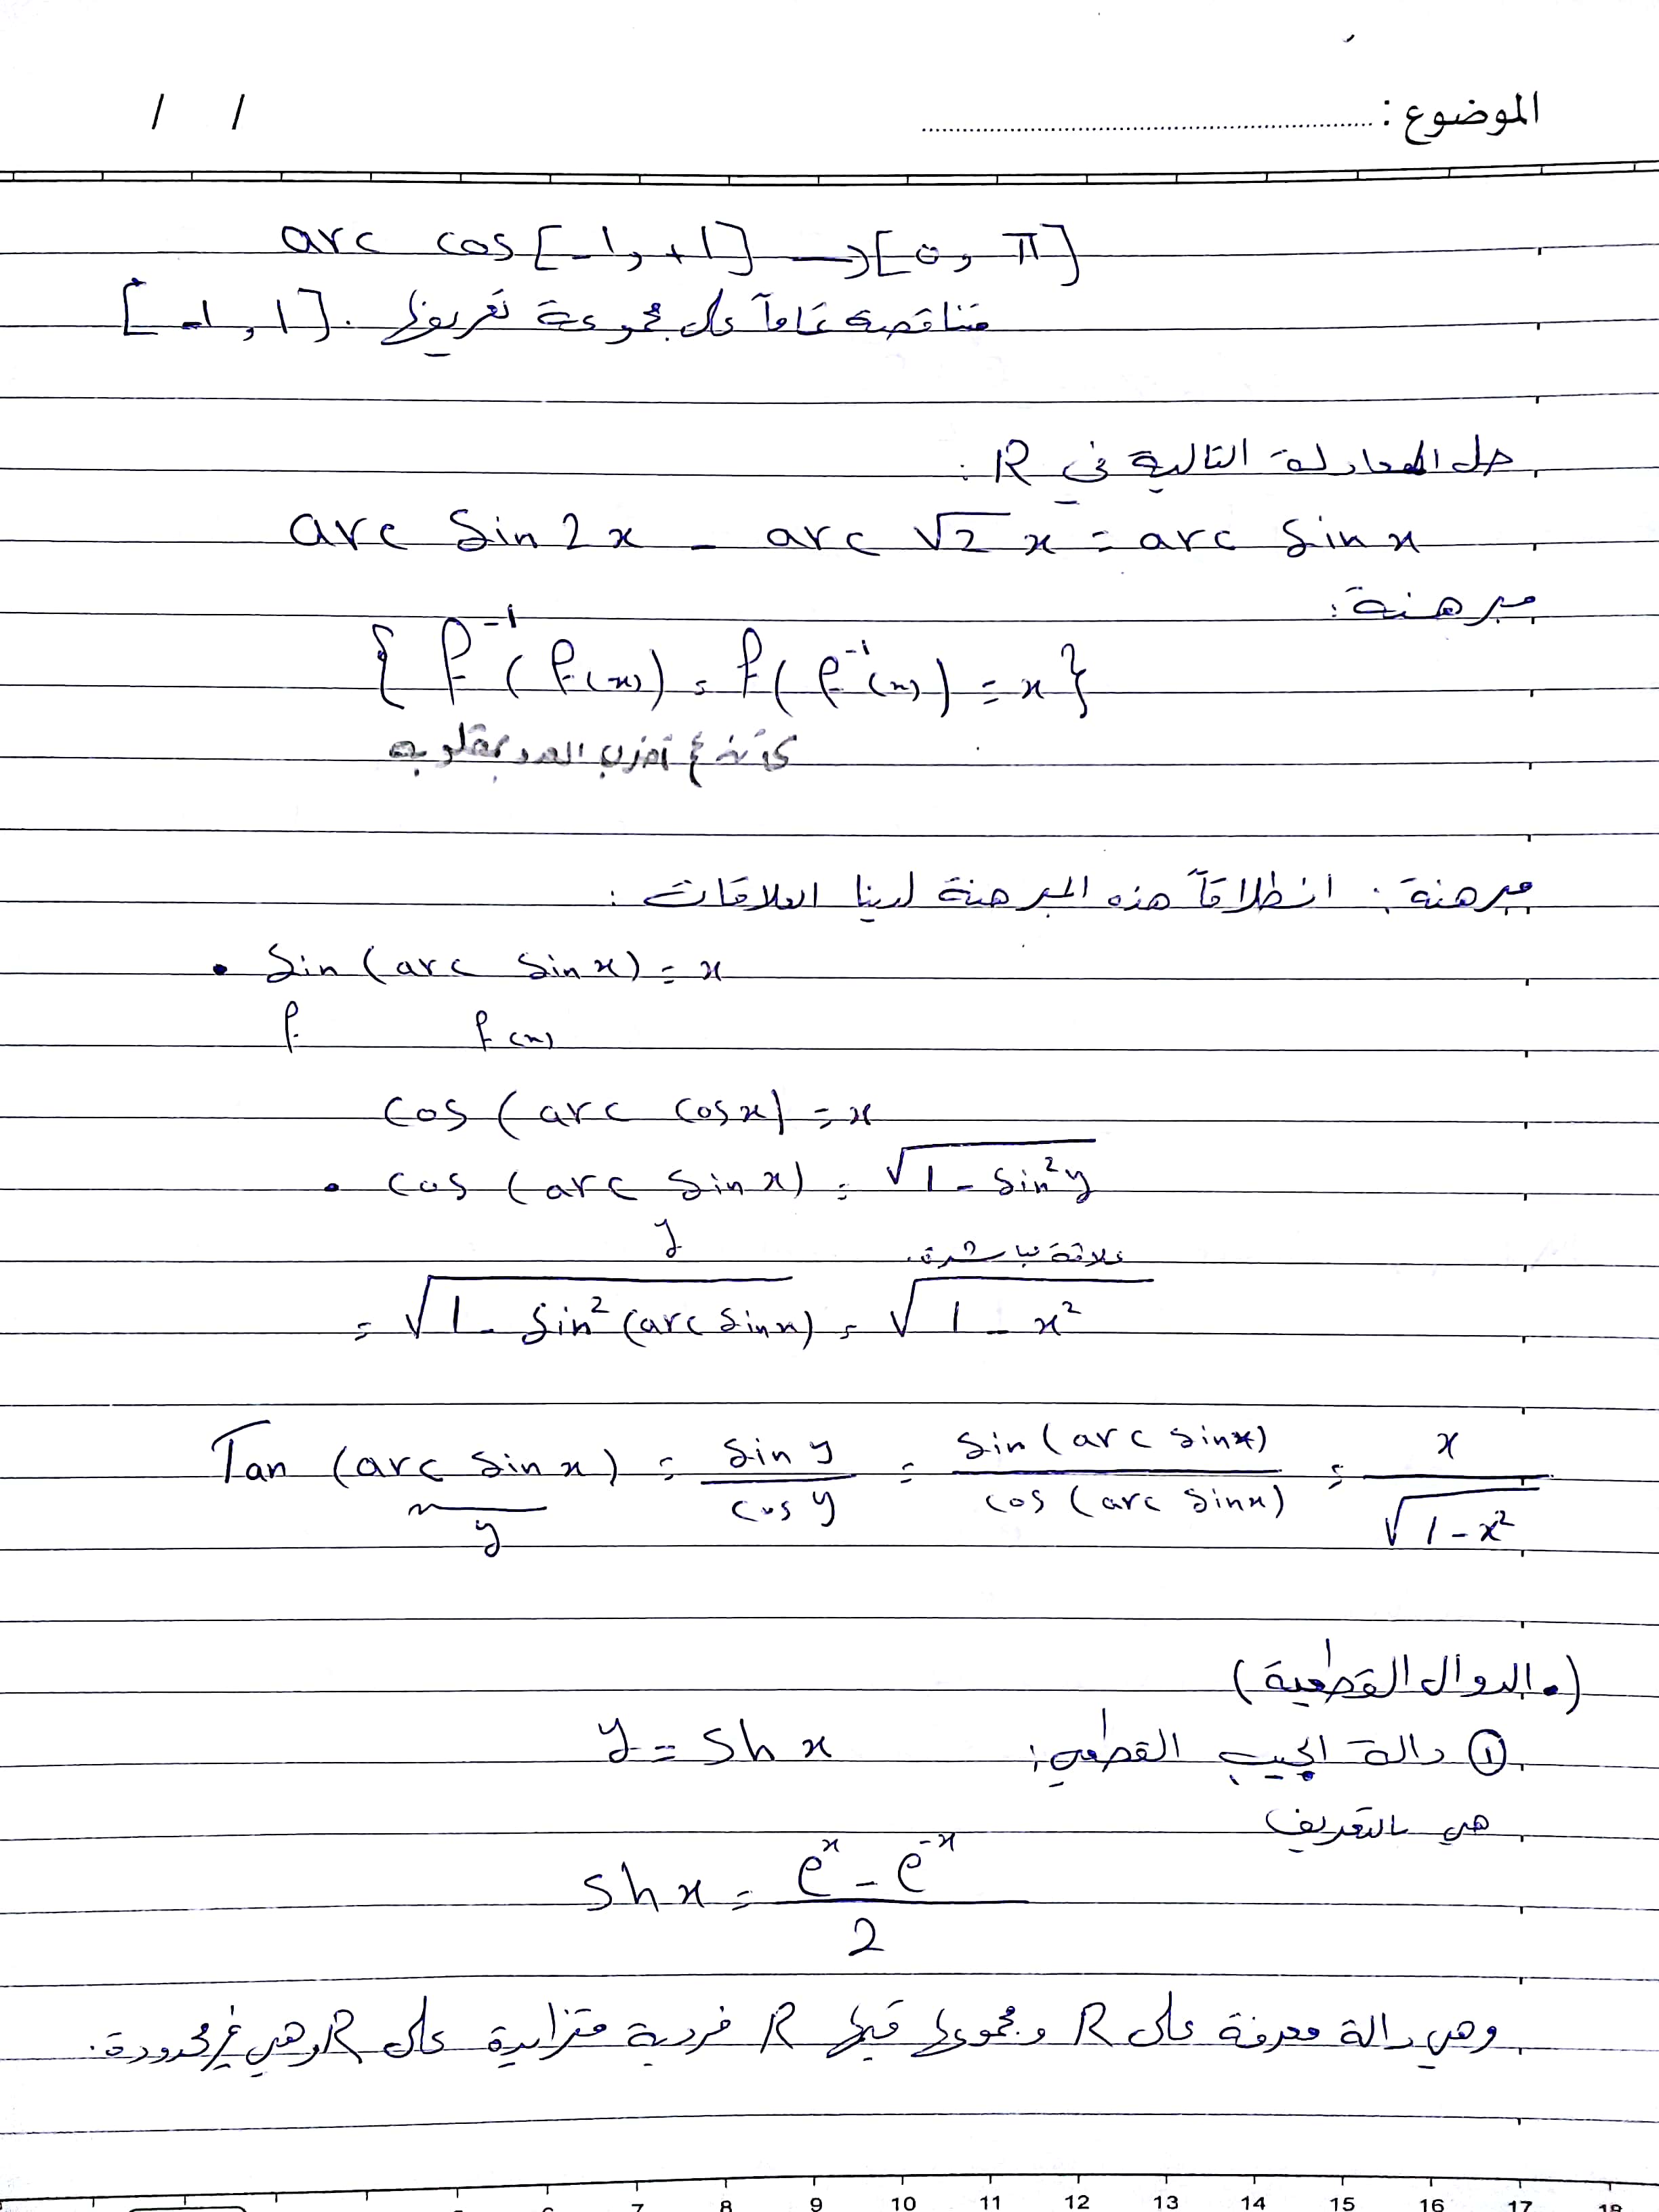 الموضوع : / /
arc cos [-1, +1] → [0, π]
متناقصة تماماً على مجموعة تعريفها . [-1, 1]
حل المعادلة التالية في R :
arc Sin 2x - arc √2 x = arc Sin x
مبرهنة :
{ f⁻¹(f(x)) = f(f⁻¹(x)) = x }
أضرب العدد بمقلوبه
مبرهنة : انطلاقاً هذه المبرهنة لدينا العلاقات :
• Sin (arc Sin x) = x
f f(x)
cos (arc cos x) = x
• cos (arc Sin x) = √(1 - Sin² y)
y علاقة مباشرة.
= √(1 - Sin² (arc Sin x)) = √(1 - x²)
Tan (arc Sin x) = sin y / cos y = Sin (arc Sin x) / cos (arc Sin x) = x / √(1 - x²)
y
(• الدوال القطعية)
① دالة الجيب القطعي : y = sh x
هي بالتعريف
sh x = (eˣ - e⁻ˣ) / 2
وهي دالة معرفة على R ومجموعة قيمها R فردية متزايدة على R وهي غير محدودة .
5 6 7 8 9 10 11 12 13 14 15 16 17 18